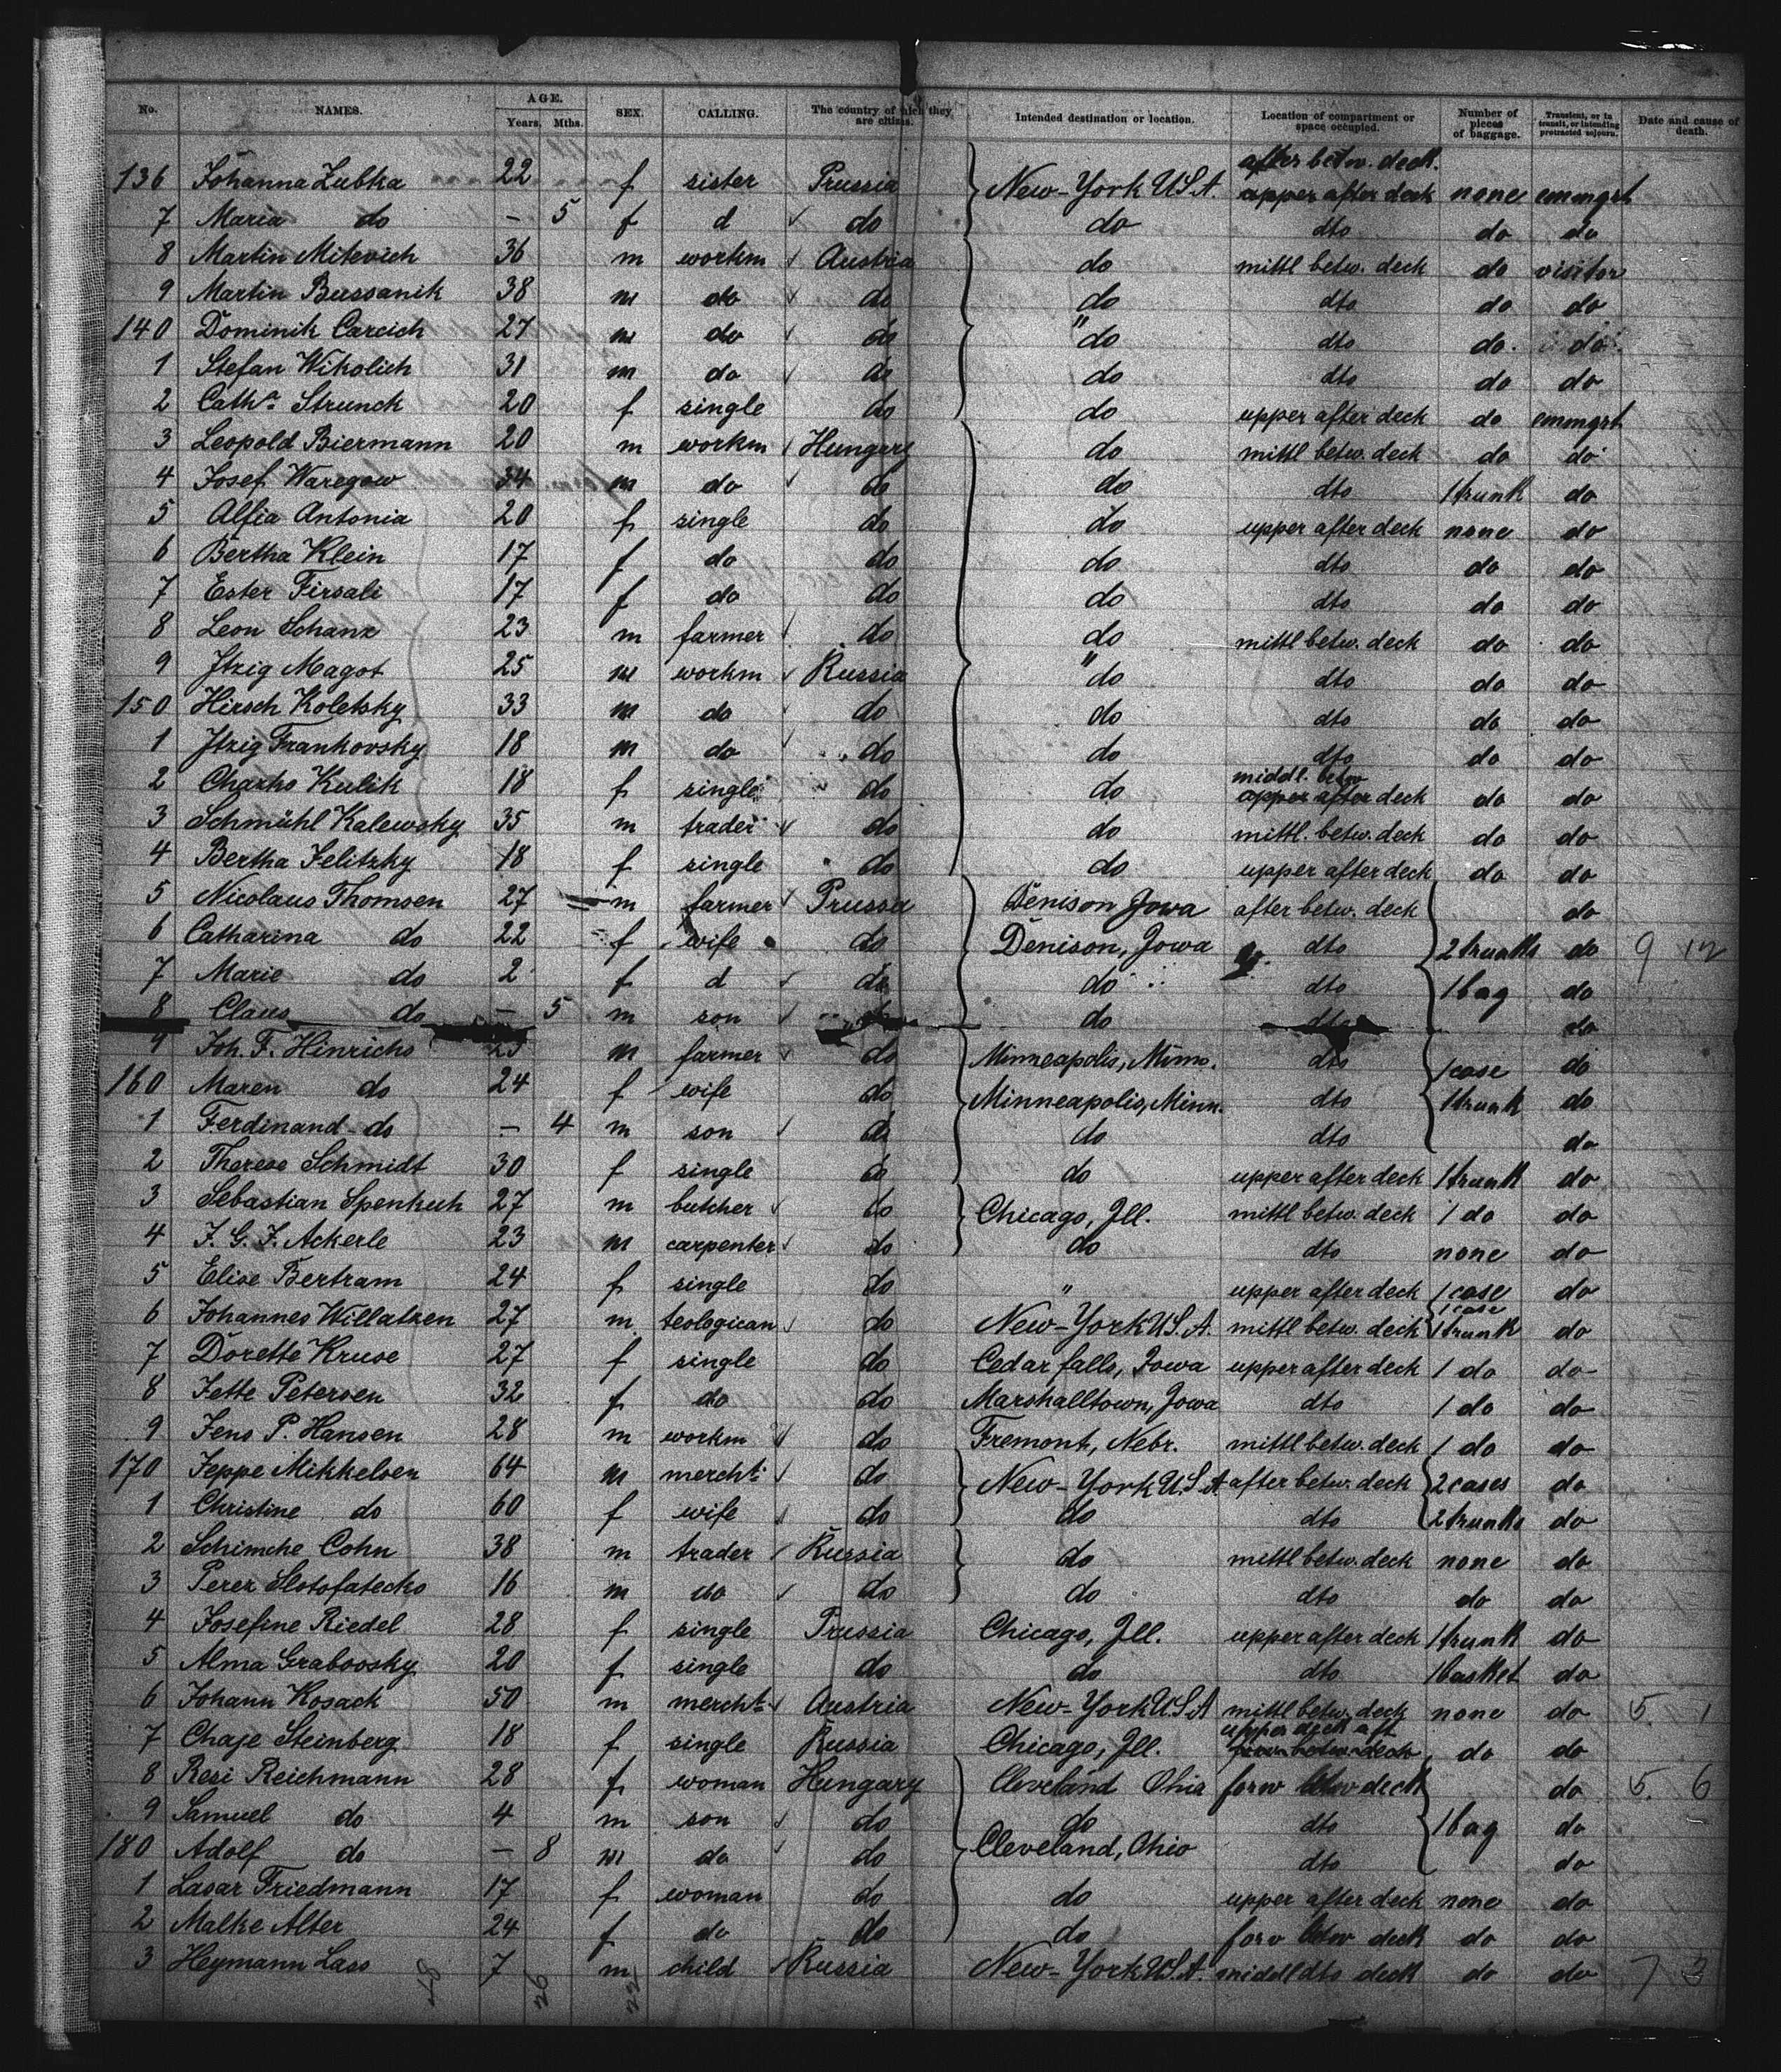 No. NAMES. AGE. Years, Mths. SEX. CALLING. The country of which they are citizns. Intended destination or location. Location of compartment or space occupied. Number of pieces of baggage. Transient, or in transit, or intending protracted sojourn. Date and cause of death.
after betw. deck.
136 Johanna Zubka 22 f sister Prussia New-York U.S.A. upper after deck none emmgrt
7 Maria do — 5 f d ✓ do do dto do do
8 Martin Mitevich 36 m workm ✓ Austria do mittl betw. deck do visitor
9 Martin Bussanik 38 m do ✓ do do dto do do
140 Dominik Carcich 27 m do ✓ do " do dto do do
1 Stefan Wikolich 31 m do ✓ do do dto do do
2 Cath.a Strunck 20 f single do do upper after deck do emmgrt
3 Leopold Biermann 20 m workm ✓ Hungary do mittl betw. deck do do
4 Josef Waregow 34 m do ✓ do do dto 1 trunk do
5 Alfia Antonia 20 f single do do upper after deck none do
6 Bertha Klein 17 f do do do dto do do
7 Ester Firsali 17 f do do do dto do do
8 Leon Schanz 23 m farmer ✓ do do mittl betw. deck do do
9 Itzig Magot 25 m workm ✓ Russia " do dto do do
150 Hirsch Koletsky 33 m do ✓ do do dto do do
1 Itzig Frankovsky 18 m do ✓ do do dto do do
middl. betw
2 Chazko Kulik 18 f single do do upper after deck do do
3 Schmühl Kalewsky 35 m trader ✓ do do mittl. betw. deck do do
4 Bertha Jelitzky 18 f single do do upper after deck do do
5 Nicolaus Thomsen 27 m farmer ✓ Prussia Denison Jowa after betw. deck do
6 Catharina do 22 f wife do Denison, Jowa dto 2 trunks do 9 12
7 Marie do 2 f d ✓ do do dto 1 bag do
8 Claus do — 5 m son ✓ do do dto do
9 Joh. F. Hinrichs m farmer ✓ do Minneapolis, Minn. dto 1 case do
160 Maren do 24 f wife do Minneapolis, Minn. dto 1 trunk do
1 Ferdinand do — 4 m son ✓ do do dto do
2 Therese Schmidt 30 f single do do upper after deck 1 trunk do
3 Sebastian Spenkuch 27 m butcher ✓ do Chicago, Ill. mittl betw. deck 1 do do
4 J. G. F. Ackerle 23 m carpenter ✓ do do dto none do
5 Elise Bertram 24 f single do " upper after deck 1 case do
1 case
6 Johannes Willatzen 27 m teologican ✓ do New-York U.S.A. mittl betw. deck 1 trunk do
7 Dorette Kruse 27 f single do Cedar falls, Iowa upper after deck 1 do do
8 Jette Petersen 32 f do do Marshalltown, Jowa dto 1 do do
9 Jens P. Hansen 28 m workm ✓ do Fremont, Nebr. mittl betw. deck 1 do do
170 Jeppe Mikkelsen 64 m mercht. ✓ do New-York U.S.A. after betw. deck 2 cases do
1 Christine do 60 f wife ✓ do do dto 2 trunks do
2 Schimche Cohn 38 m trader ✓ Russia do mittl betw. deck none do
3 Perer Slotofatecko 16 m do ✓ do do dto do do
4 Josefine Riedel 28 f single Prussia Chicago, Ill. upper after deck 1 trunk do
5 Alma Grabovsky 20 f single do do dto 1 basket do
6 Johann Kosack 50 m mercht. ✓ Austria New-York U.S.A mittl betw. deck none do 5. 1
upper deck aft
7 Chaje Steinberg 18 f single Russia Chicago, Ill. forw betw deck do do
8 Resi Reichmann 28 f woman Hungary Cleveland Ohio forw betw deck do 5. 6
9 Samuel do 4 m son ✓ do do dto 1 bag do
180 Adolf do — 8 m do ✓ do Cleveland, Ohio dto do
1 Lasar Friedmann 17 f woman do do upper after deck none do
2 Malke Alter 24 f do do do forw betw deck do do
3 Heymann Lass 7 m child ✓ Russia New-York U.S.A. middl dto deck do do 7 3